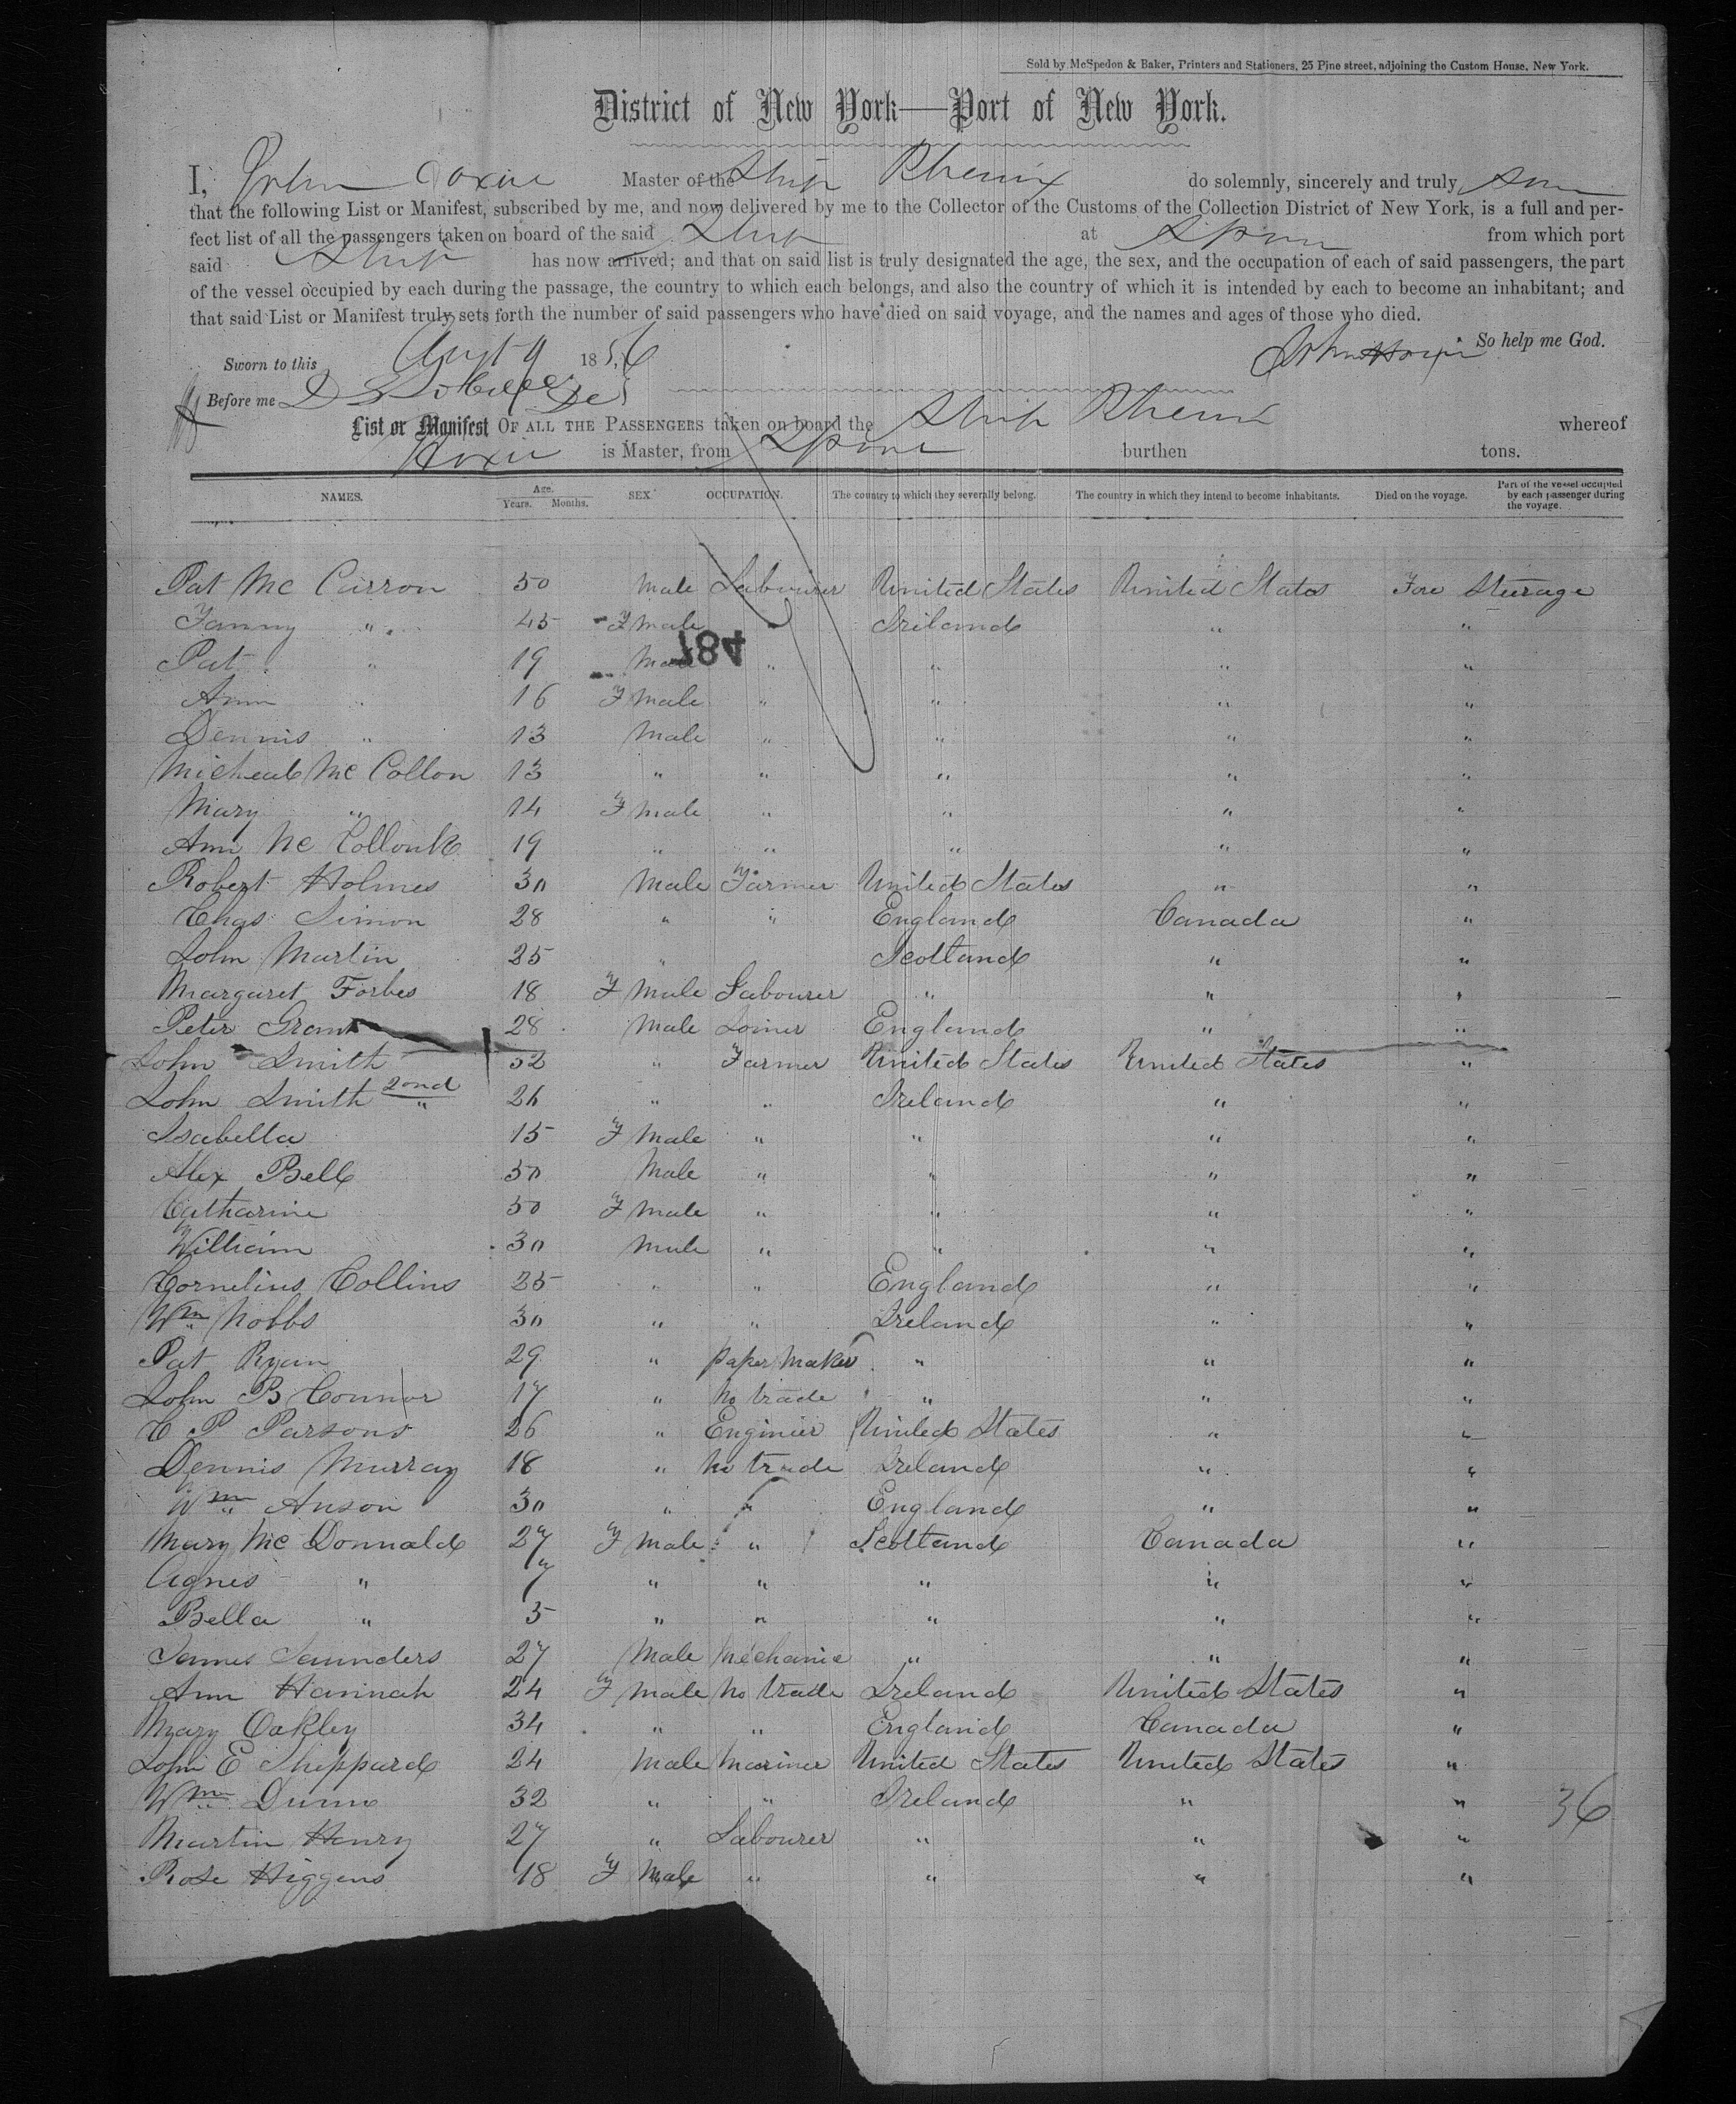 Sold by McSpedon & Baker, Printers and Stationers, 25 Pine street, adjoining the Custom House, New York.
District of New York—Port of New York.
I, John Hoxie Master of the Ship do solemnly, sincerely and truly
that the following List or Manifest, subscribed by me, and now delivered by me to the Collector of the Customs of the Collection District of New York, is a full and per-
fect list of all the passengers taken on board of the said Ship at from which port
said Ship has now arrived; and that on said list is truly designated the age, the sex, and the occupation of each of said passengers, the part
of the vessel occupied by each during the passage, the country to which each belongs, and also the country of which it is intended by each to become an inhabitant; and
that said List or Manifest truly sets forth the number of said passengers who have died on said voyage, and the names and ages of those who died.
So help me God.
Sworn to this Augt 9 1856 John Hoxie
Before me
List or Manifest OF ALL THE PASSENGERS taken on board the Ship whereof
Hoxie is Master, from burthen tons.
NAMES. Age. Years. Months. SEX. OCCUPATION. The country to which they severally belong. The country in which they intend to become inhabitants. Died on the voyage. Part of the vessel occupied by each passenger during the voyage.
Pat Mc Carron 50 Male Labourer United States United States Fore Steerage
Fanny " 45 F male Ireland " "
784
Pat " 19 Male " " " "
Ann " 16 F male " " " "
Dennis " 13 Male " " " "
Micheal Mc Collon 13 " " " " "
Mary " 14 F male " " " "
Ann Mc 19 " " " " "
Robert Holmes 30 Male Farmer United States " "
Chas Simon 28 " " England Canada "
John Martin 25 " Scotland " "
Margaret Forbes 18 F Male Labourer " " "
Peter Grant 28 Male Joiner England " "
John Smith 32 " Farmer United States United States "
John Smith 2ond 26 " " Ireland " "
Isabella " 15 F Male " " " "
Alex Bell 50 Male " " " "
Catharine 50 F Male " " " "
William 30 Male " " " "
Cornelius Collins 25 " " England " "
Wm Nobbs 30 " " Ireland " "
Pat Ryan 29 " paper Maker " " "
John B Connor 17 " No trade " " "
C P Parsons 26 " Enginier United States " "
Dennis Murray 18 " No trade Ireland " "
Wm Anson 30 " " England " "
Mary Mc Donnald 27 F Male " Scotland Canada "
Agnes " 7 " " " " "
Bella " 5 " " " " "
James Saunders 27 Male Mechanic " " "
Ann Hannah 24 F male No trade Ireland United States "
Mary Oakley 34 " " England Canada "
John E Sheppard 24 Male Mariner United States United States "
Wm Dunn 32 " " Ireland " " 36
Martin Henry 27 " Labourer " " "
Rose Higgens 18 F Male " " " "